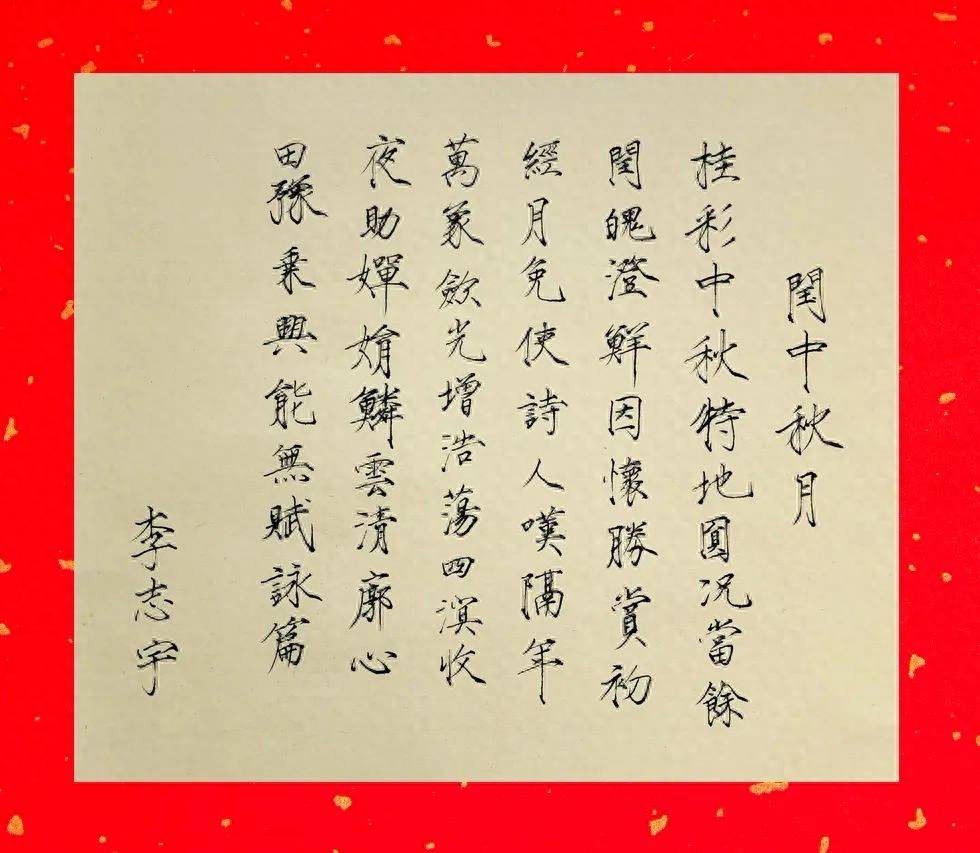 閏中秋月
桂彩中秋特地圓況當餘
閏魄澄鮮因懷勝賞初
經月免使詩人嘆隔年
萬象斂光增浩蕩四溟收
夜助嬋娟鱗雲清廓心
田豫乘興能無賦詠篇
李志宇